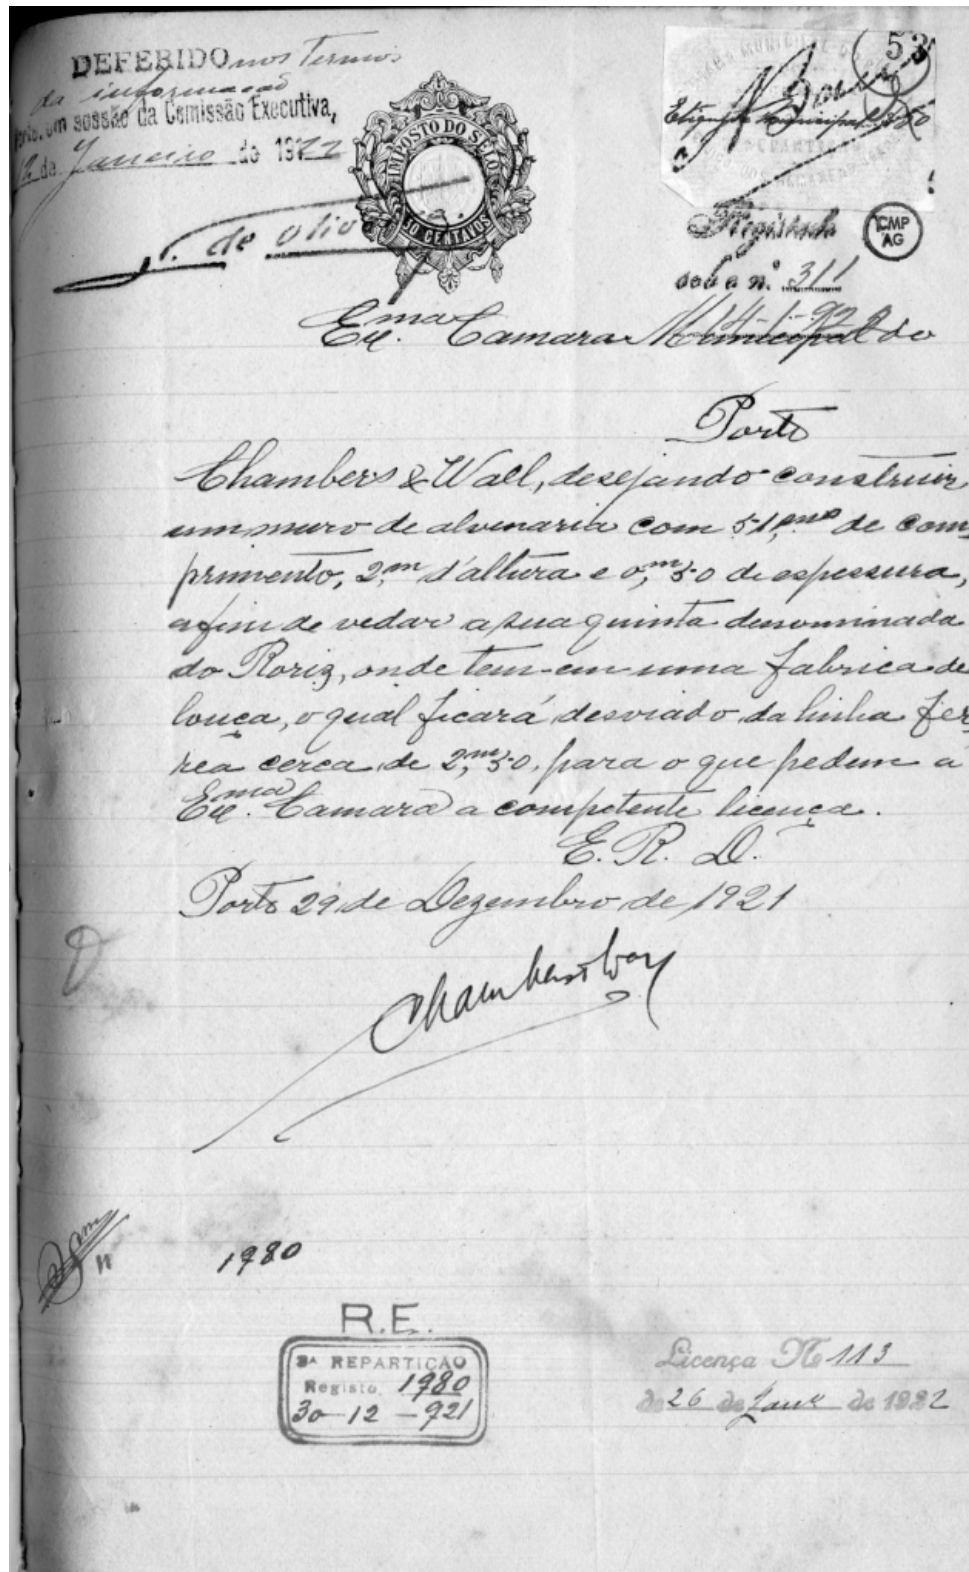 DEFERIDO nos termos
da informação
Porto, em sessão da Comissão Executiva,
12 de Janeiro de 1922
IMPOSTO DO SELO
30 CENTAVOS
53
Registado
sob o n.º 311
CMP
AG
Ex.ma Camara Municipal do
Porto
Chambers & Wall, desejando construir
um muro de alvenaria com 51,m0 de com
primento, 2,m d'altura e 0,m50 de espessura,
afim de vedar a sua quinta denominada
do Roriz, onde tem em uma fabrica de
louça, o qual ficará desviado da linha fer
rea cerca de 2,m50, para o que pedem a
Ex.ma Camara a competente licença.
E. R. D.
Porto 29 de Dezembro de 1921
Chambers & Wall
1980
R.E.
3ª REPARTIÇÃO
Registo 1980
30-12-921
Licença Nº 113
de 26 de Janº de 1922